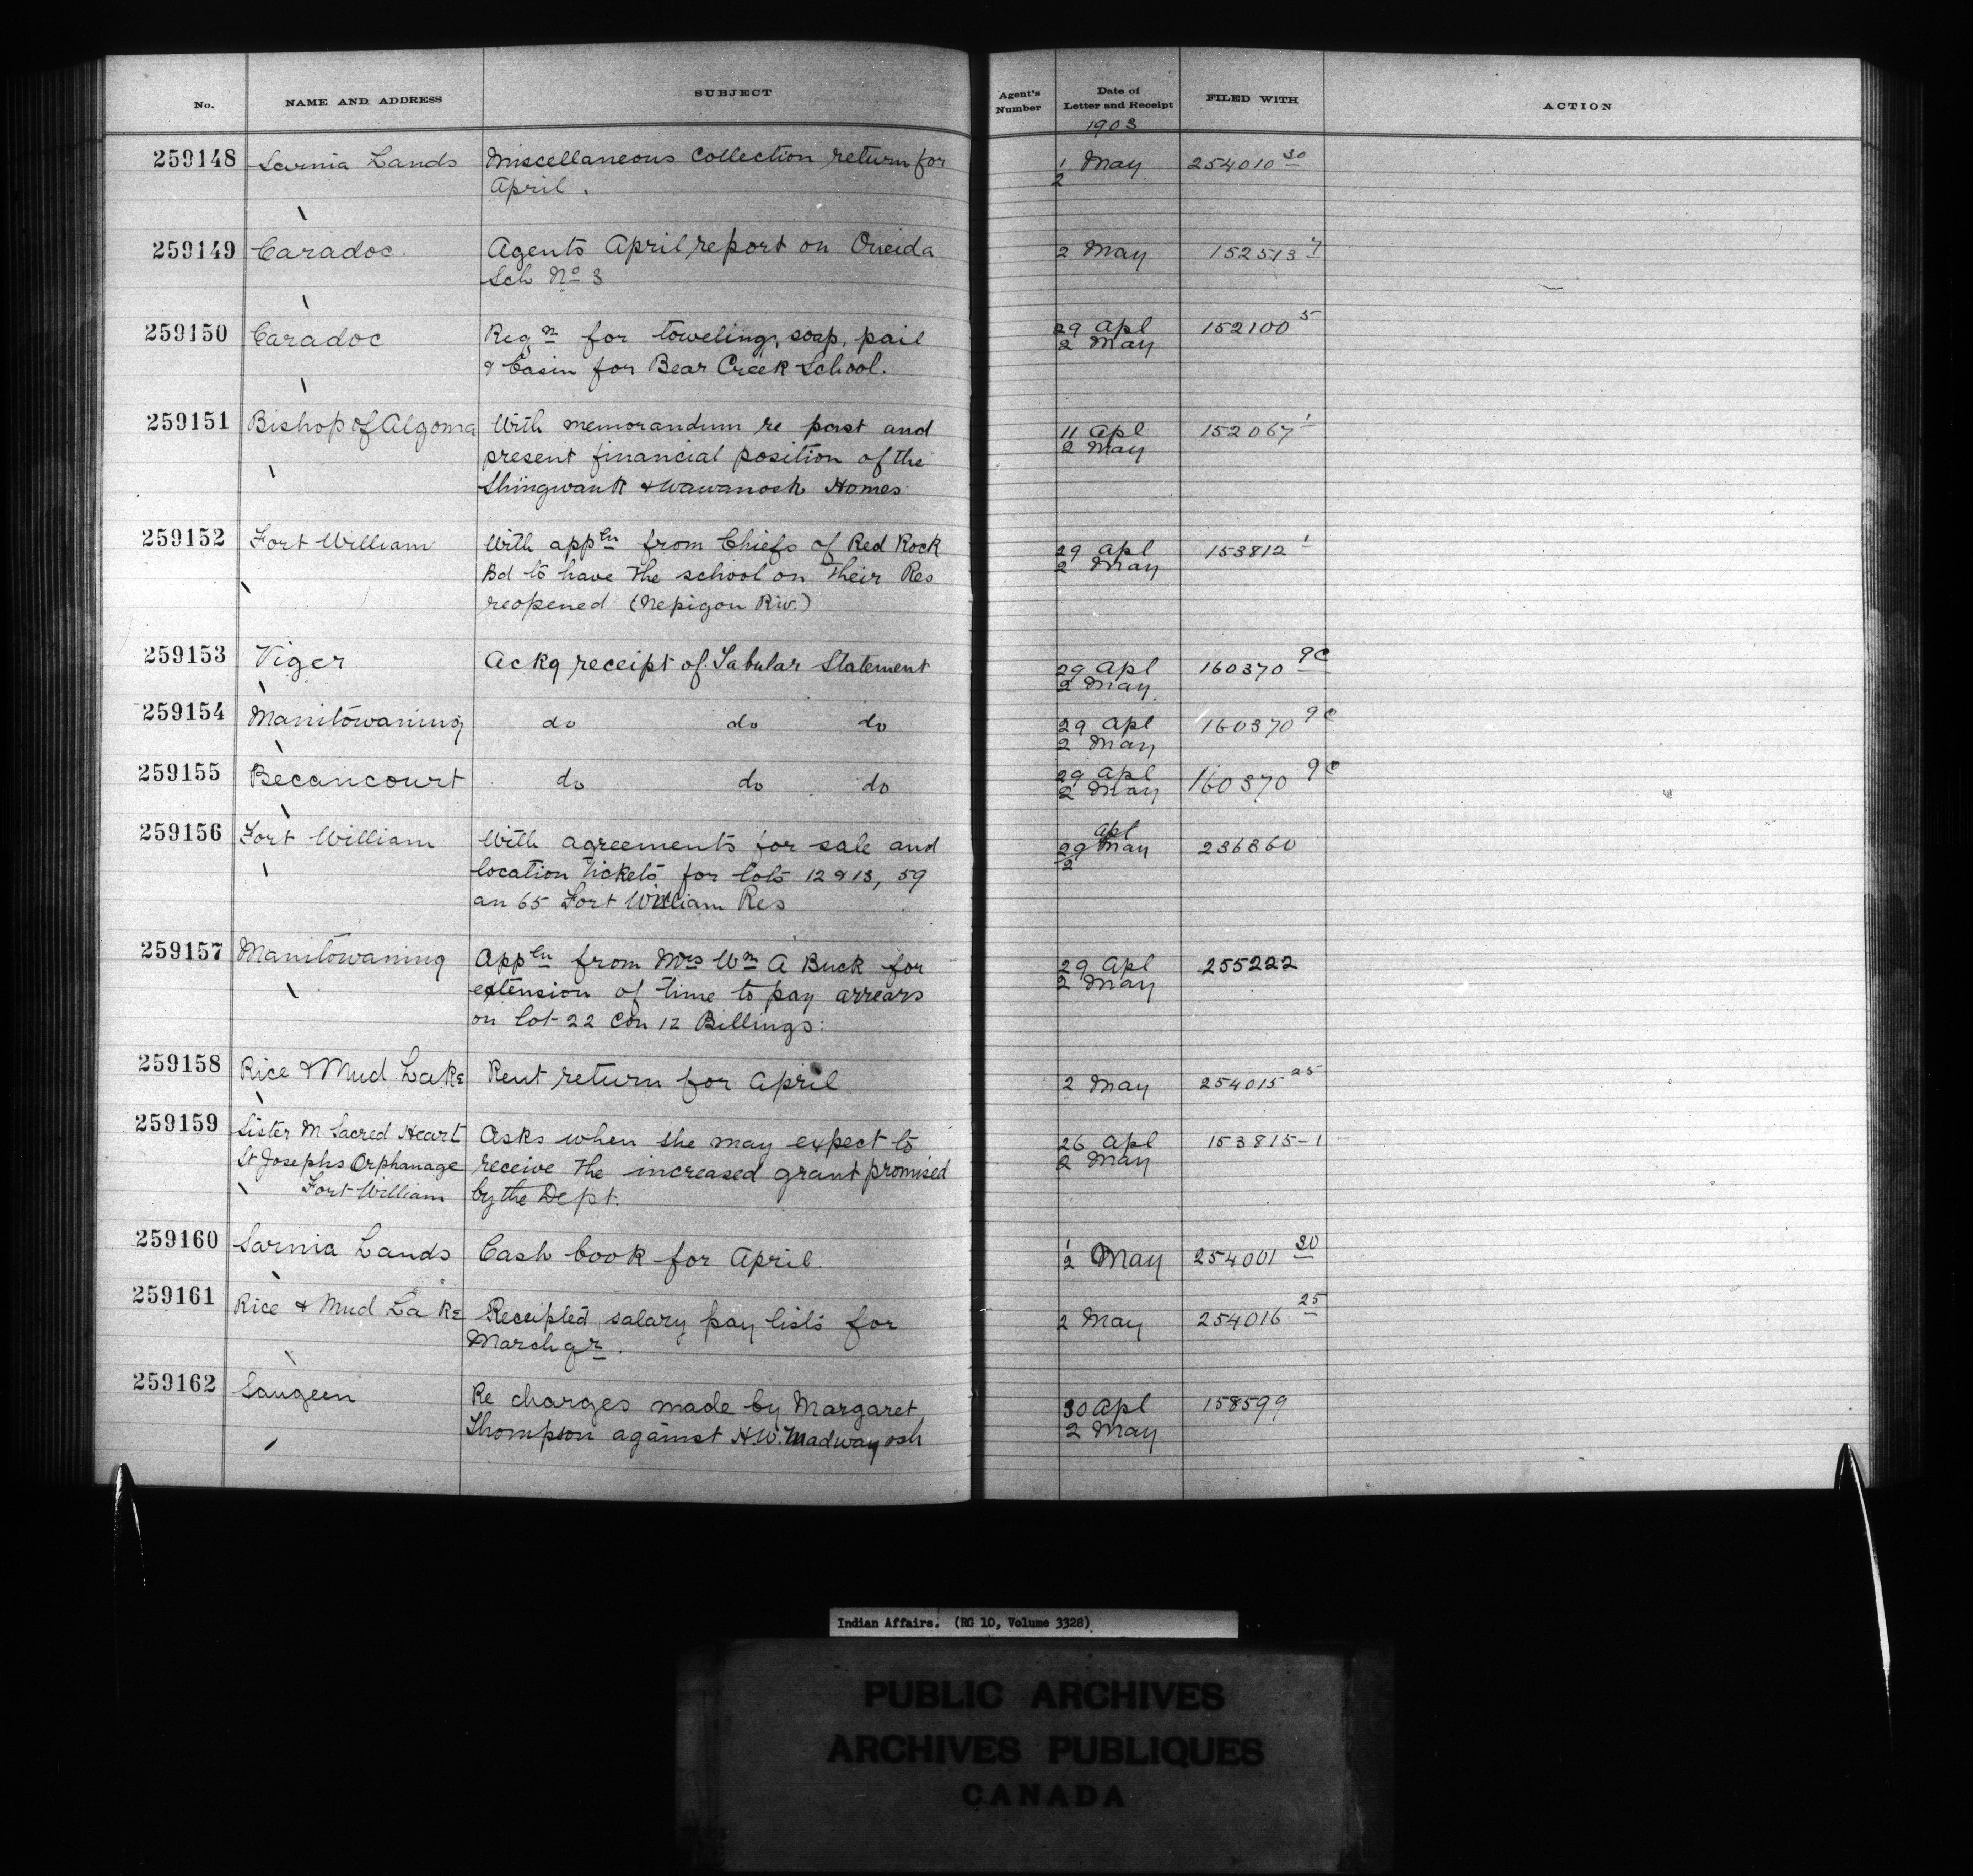 No. NAME AND ADDRESS SUBJECT Agent's Number Date of Letter and Receipt FILED WITH ACTION
1903
259148 Sarnia Lands Miscellaneous collection return for 1 May 254010 30
April. 2
259149 Caradoc. Agents April report on Oneida 2 May 152513 7
Sch No 3
259150 Caradoc Reqn for toweling, soap, pail 29 Apl 152100 5
& basin for Bear Creek School. 2 May
259151 Bishop of Algoma With memorandum re past and 11 Apl 152067 1
present financial position of the 2 May
Shingwauk & Wawanosh Homes
259152 Fort William With appln from Chiefs of Red Rock 29 Apl 153812 1
Bd to have the school on their Res 2 May
reopened (Nepigon Riv.)
259153 Viger Ackg receipt of Tabular Statement 29 Apl 160370 9c
2 May
259154 Manitowaning do do do 29 Apl 160370 9c
2 May
259155 Becancourt do do do 29 Apl 160370 9c
2 May
259156 Fort William With agreements for sale and 29 Apl May 236360
location tickets for lots 12 & 13, 59 2
an 65 Fort William Res
259157 Manitowaning Appln from Mrs Wm A Buck for 29 Apl 255222
extension of time to pay arrears 2 May
on lot 22 Con 12 Billings.
259158 Rice & Mud Lake Rent return for April 2 May 254015 25
259159 Sister M Sacred Heart Asks when she may expect to 26 Apl 153815-1
St Josephs Orphanage receive the increased grant promised 2 May
Fort William by the Dept.
259160 Sarnia Lands Cash book for April. 1 May 254001 30
2
259161 Rice & Mud Lake Receipted salary pay lists for 2 May 254016 25
March qr.
259162 Saugeen Re charges made by Margaret 30 Apl 158599
Thompson against H.W. Madwayosh 2 May
Indian Affairs. (RG 10, Volume 3328)
PUBLIC ARCHIVES
ARCHIVES PUBLIQUES
CANADA